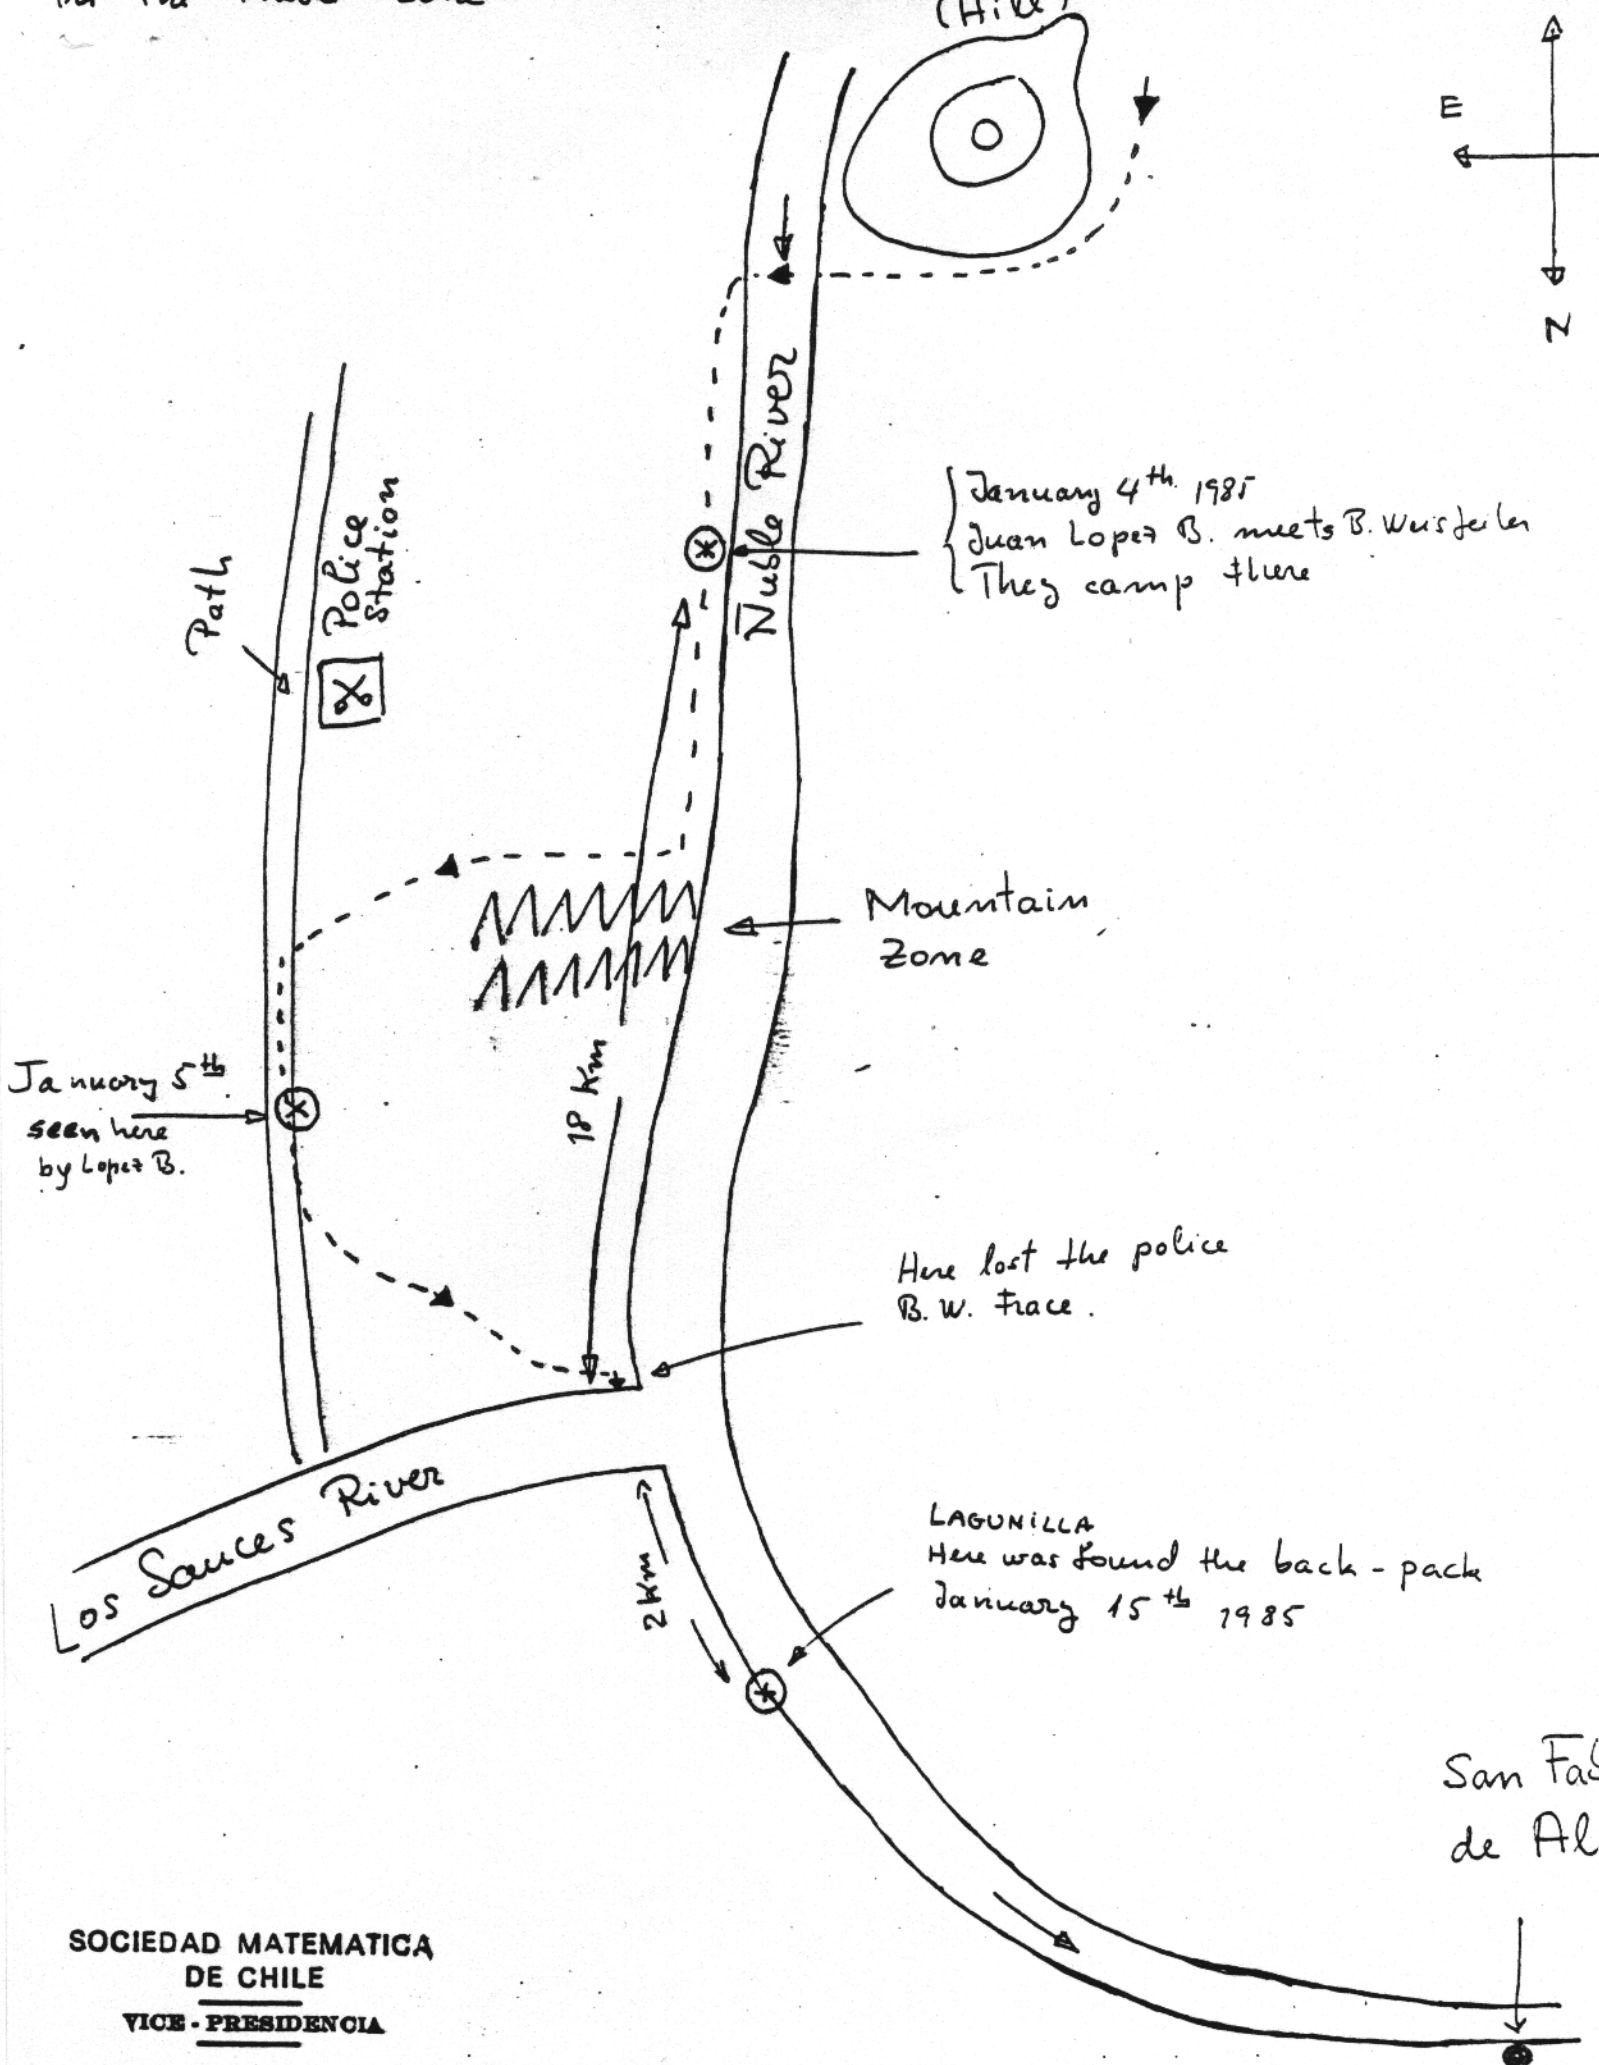 (Hike)
E
N
Path
Police
Station
Ñuble River
January 4th 1985
Juan Lopez B. meets B. Weisfeiler
They camp there
Mountain
Zone
18 Km
January 5th
seen here
by Lopez B.
Here lost the police
B. W. trace.
Los Sauces River
2 Km
LAGUNILLA
Here was found the back-pack
January 15th 1985
San Fab
de Al
SOCIEDAD MATEMATICA
DE CHILE
VICE-PRESIDENCIA